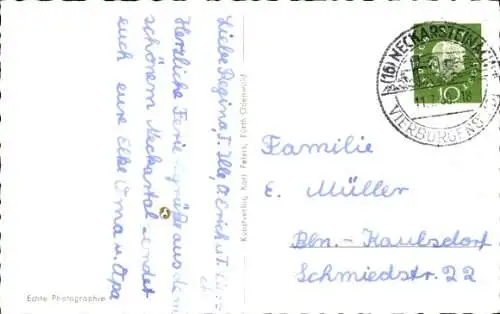 Liebe Regina, T. Ille, O. Erich u. T.
Herzliche Feriengrüße aus dem
schönem Neckartal sendet
euch eure Elke Oma u. Opa
Echte Photographie
Kunstverlag Karl Peters, Fürth Odenwald
(16) NECKARSTEINACH
VIERBURGENS
10
Familie
E. Müller
Bln.-Kaulsdorf
Schmiedstr. 22